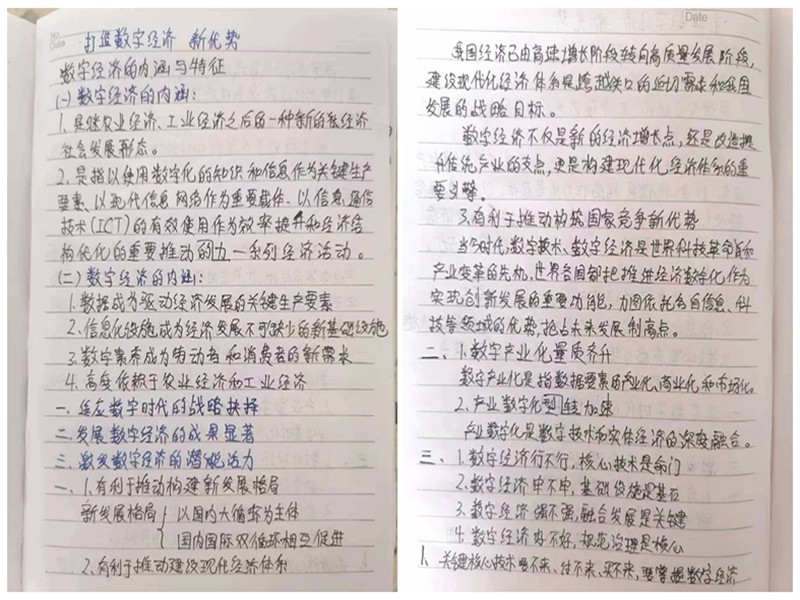 No.
Date
打造数字经济 新优势
数字经济的内涵与特征
(一)数字经济的内涵:
1.是继农业经济、工业经济之后的一种新的经济
社会发展形态。
2.是指以使用数字化的知识和信息作为关键生产
要素、以现代信息网络作为重要载体、以信息通信
技术(ICT)的有效使用作为效率提升和经济结
构优化的重要推动的力一系列经济活动。
(二)数字经济的内涵:
1.数据成为驱动经济发展的关键生产要素
2.信息化设施成为经济发展不可缺少的新基础设施
3.数字素养成为劳动者和消费者的新需求
4.高度依赖于农业经济和工业经济
一.数字时代的战略抉择
二.发展数字经济的成果显著
三.激发数字经济的潜能活力
一、1.有利于推动构建新发展格局
新发展格局 以国内大循环为主体
国内国际双循环相互促进
2.有利于推动建设现代化经济体系
Date
我国经济已由高速增长阶段转向高质量发展阶段,
建设现代化经济体系是跨越关口的迫切需求和我国
发展的战略目标。
数字经济不仅是新的经济增长点,还是改造提
升传统产业的支点,更是构建现代化经济体系的重
要引擎。
3.有利于推动构筑国家竞争新优势
当今时代,数字技术、数字经济是世界科技革命和
产业变革的先机,世界各国都把推进经济数字化作为
实现创新发展的重要功能,力图依托各自信息、科
技等领域的优势,抢占未来发展制高点。
二、1.数字产业化量质齐升
数字产业化是指数据要素的产业化、商业化和市场化。
2.产业数字化型转加速
产业数字化是数字技术和实体经济的深度融合。
三、1.数字经济行不行,核心技术是命门
2.数字经济牢不牢,基础设施是基石
3.数字经济强不强,融合发展是关键
4.数字经济好不好,规范治理是核心
1、关键核心技术要不来、讨不来、买不来,要掌握数字经济